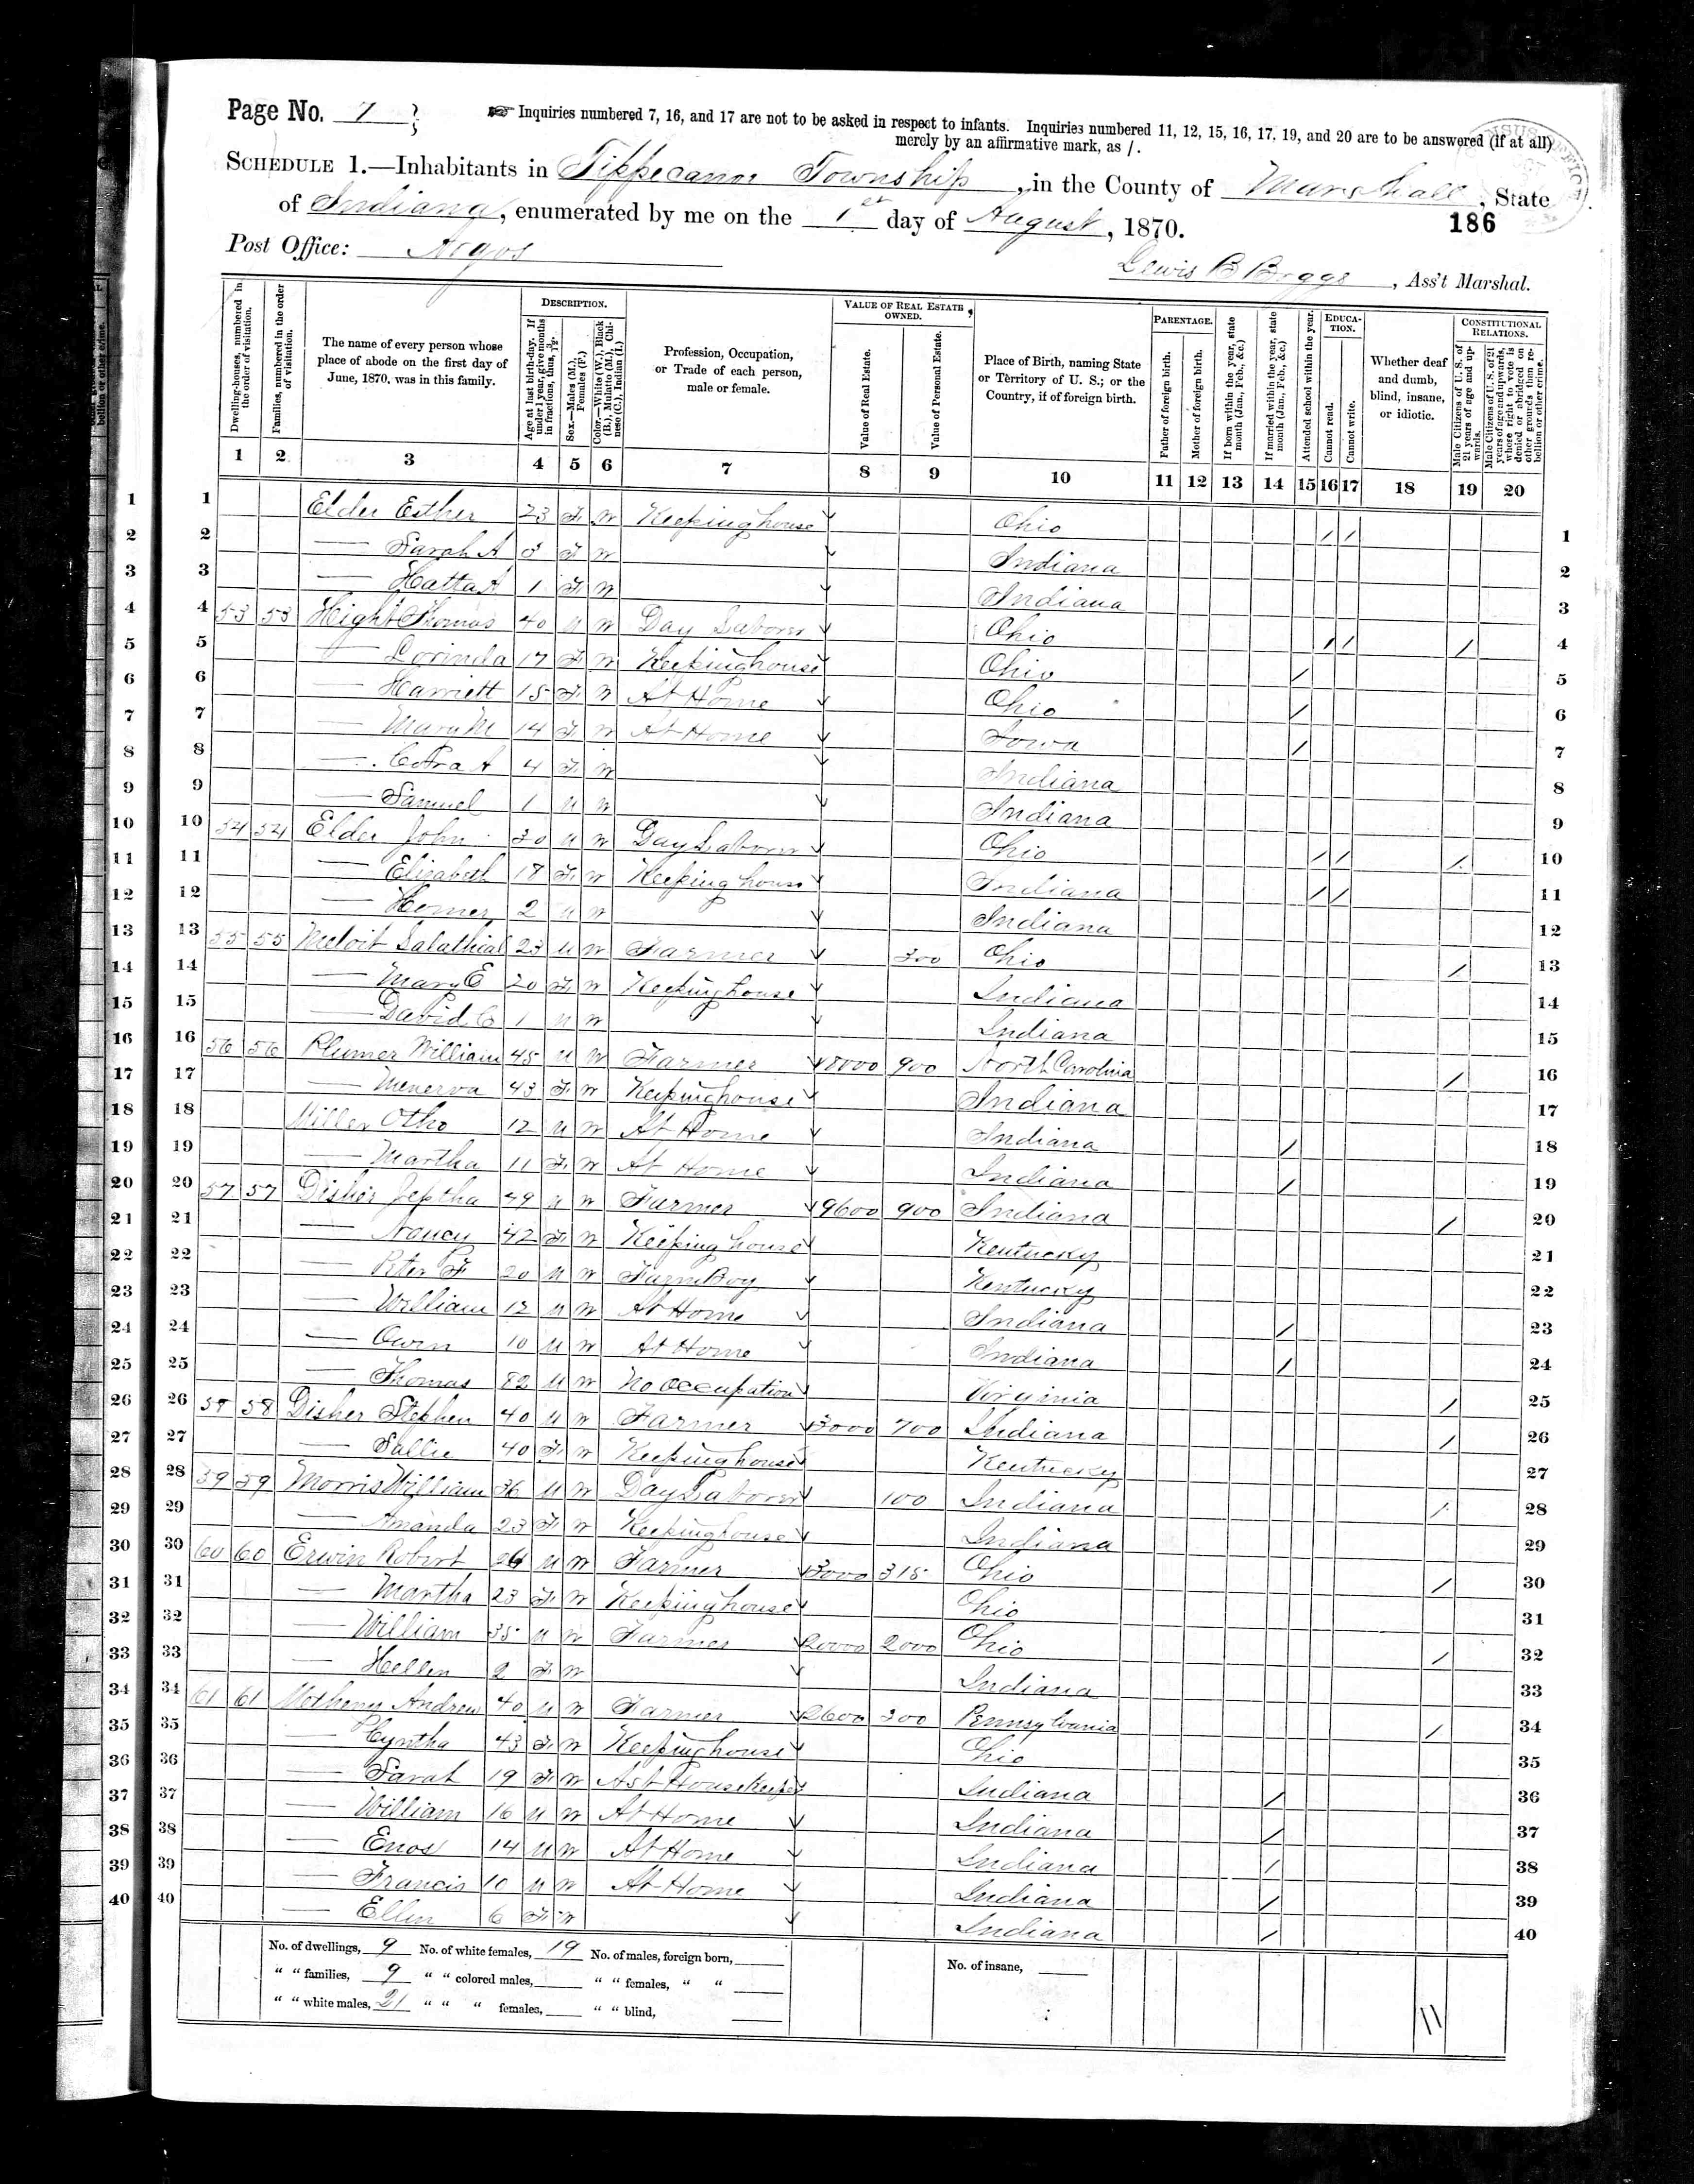 Page No. 7
☞ Inquiries numbered 7, 16, and 17 are not to be asked in respect to infants. Inquiries numbered 11, 12, 15, 16, 17, 19, and 20 are to be answered (if at all)
merely by an affirmative mark, as /.
SCHEDULE 1.—Inhabitants in Tippecanoe Township, in the County of Marshall, State
of Indiana, enumerated by me on the 1st day of August, 1870.
186
Post Office: Argos
Lewis B Boggs, Ass't Marshal.
Dwelling-houses, numbered in the order of visitation.
Families, numbered in the order of visitation.
The name of every person whose place of abode on the first day of June, 1870, was in this family.
DESCRIPTION.
Age at last birth-day. If under 1 year, give months in fractions, thus, 3/12.
Sex.—Males (M.), Females (F.)
Color.—White (W.), Black (B.), Mulatto (M.), Chinese (C.), Indian (I.)
Profession, Occupation, or Trade of each person, male or female.
VALUE OF REAL ESTATE OWNED.
Value of Real Estate.
Value of Personal Estate.
Place of Birth, naming State or Territory of U. S.; or the Country, if of foreign birth.
PARENTAGE.
Father of foreign birth.
Mother of foreign birth.
If born within the year, state month (Jan., Feb., &c.)
If married within the year, state month (Jan., Feb., &c.)
Attended school within the year.
EDUCATION.
Cannot read.
Cannot write.
Whether deaf and dumb, blind, insane, or idiotic.
CONSTITUTIONAL RELATIONS.
Male Citizens of U. S. of 21 years of age and upwards.
Male Citizens of U. S. of 21 years of age and upwards, where right to vote is denied or abridged on other grounds than rebellion or other crime.
1 2 3 4 5 6 7 8 9 10 11 12 13 14 15 16 17 18 19 20
1 1 Elder Esther 23 F W Keeping house Ohio / / 1
2 2 — Sarah A F W Indiana 2
3 3 — Hatta A 1 F W Indiana 3
4 4 53 53 Hight Thomas 40 M W Day Laborer Ohio / / / 4
5 5 — Lorinda 17 F W Keeping house Ohio / 5
6 6 — Harriett 15 F W At Home Ohio / 6
7 7 — Mary M 14 F W At Home Iowa / 7
8 8 — A 4 F W Indiana 8
9 9 — Samuel 1 M W Indiana 9
10 10 54 54 Elder John 30 M W Day Laborer Ohio / / / 10
11 11 — Elizabeth 18 F W Keeping house Indiana / / 11
12 12 — Homer 2 M W Indiana 12
13 13 55 55 Salathial 23 M W Farmer 300 Ohio / 13
14 14 — Mary E 20 F W Keeping house Indiana 14
15 15 — David C 1 M W Indiana 15
16 16 56 56 Plumer William 45 M W Farmer 8000 900 North Carolina / 16
17 17 — Menerva 43 F W Keeping house Indiana 17
18 18 Miller Otho 12 M W At Home Indiana / 18
19 19 — Martha 11 F W At Home Indiana / 19
20 20 57 57 Disher Jeptha 49 M W Farmer 9600 900 Indiana / 20
21 21 — Nancy 42 F W Keeping house Kentucky 21
22 22 — Peter F 20 M W Farm Boy Kentucky 22
23 23 — William 12 M W At Home Indiana / 23
24 24 — Owen 10 M W At Home Indiana / 24
25 25 — Thomas 82 M W No occupation Virginia / 25
26 26 58 58 Disher Stephen 40 M W Farmer 3000 700 Indiana / 26
27 27 — Sallie 40 F W Keeping house Kentucky 27
28 28 59 59 Morris William 36 M W Day Laborer 100 Indiana / 28
29 29 — Amanda 23 F W Keeping house Indiana 29
30 30 60 60 Erwin Robert 26 M W Farmer 3000 315 Ohio / 30
31 31 — Martha 23 F W Keeping house Ohio 31
32 32 — William 35 M W Farmer 20000 2000 Ohio / 32
33 33 — Hellen 2 F W Indiana 33
34 34 61 61 Metheney Andrew 40 M W Farmer 2600 300 Pennsylvania / 34
35 35 — Cyntha 43 F W Keeping house Ohio 35
36 36 — Sarah 19 F W Ast Housekeeper Indiana / 36
37 37 — William 16 M W At Home Indiana / 37
38 38 — Enos 14 M W At Home Indiana / 38
39 39 — Francis 10 M W At Home Indiana / 39
40 40 — Ellen 6 F W Indiana / 40
No. of dwellings, 9 No. of white females, 19 No. of males, foreign born, No. of insane,
" " families, 9 " " colored males, " " females, " "
" " white males, 21 " " " females, " " blind, 11